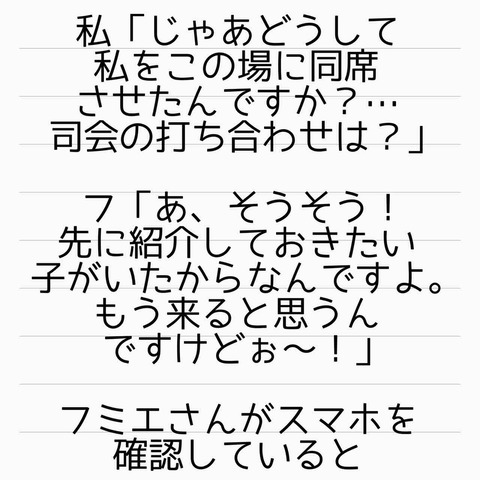 私「じゃあどうして
私をこの場に同席
させたんですか？…
司会の打ち合わせは？」
フ「あ、そうそう！
先に紹介しておきたい
子がいたからなんですよ。
もう来ると思うん
ですけどぉ〜！」
フミエさんがスマホを
確認していると